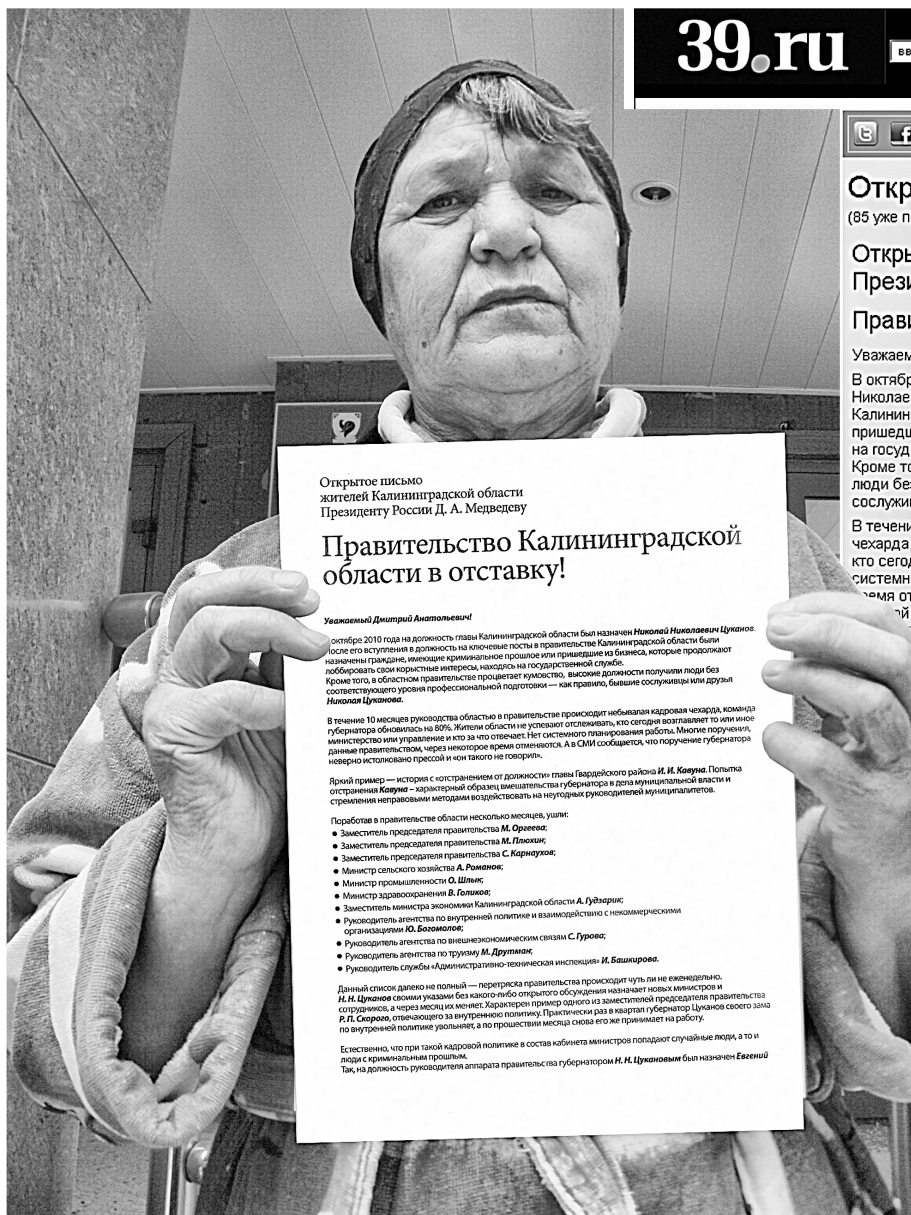 39.ru
Откр
(85 уже п
Откры
Прези
Прави
Уважаем
В октябр
Николае
Калинин
пришедш
на госуд
Кроме то
люди без
сослужи
В течени
чехарда
кто сегод
системн
время от
ой
Открытое письмо
жителей Калининградской области
Президенту России Д. А. Медведеву
Правительство Калининградской
области в отставку!
Уважаемый Дмитрий Анатольевич!
октябре 2010 года на должность главы Калининградской области был назначен Николай Николаевич Цуканов.
После его вступления в должность на ключевые посты в правительстве Калининградской области были
назначены граждане, имеющие криминальное прошлое или пришедшие из бизнеса, которые продолжают
лоббировать свои корыстные интересы, находясь на государственной службе.
Кроме того, в областном правительстве процветает кумовство, высокие должности получили люди без
соответствующего уровня профессиональной подготовки — как правило, бывшие сослуживцы или друзья
Николая Цуканова.
В течение 10 месяцев руководства областью в правительстве происходит небывалая кадровая чехарда, команда
губернатора обновилась на 80%. Жители области не успевают отслеживать, кто сегодня возглавляет то или иное
министерство или управление и кто за что отвечает. Нет системного планирования работы. Многие поручения,
данные правительством, через некоторое время отменяются. А в СМИ сообщается, что поручение губернатора
неверно истолковано прессой и «он такого не говорил».
Яркий пример — история с «отстранением от должности» главы Гвардейского района И. И. Кавуна. Попытка
отстранения Кавуна – характерный образец вмешательства губернатора в дела муниципальной власти и
стремления неправовыми методами воздействовать на неугодных руководителей муниципалитетов.
Поработав в правительстве области несколько месяцев, ушли:
● Заместитель председателя правительства М. Оргеева;
● Заместитель председателя правительства М. Плюхин;
● Заместитель председателя правительства С. Карнаухов;
● Министр сельского хозяйства А. Романов;
● Министр промышленности О. Шлык;
● Министр здравоохранения В. Голиков;
● Заместитель министра экономики Калининградской области А. Гудзарик;
● Руководитель агентства по внутренней политике и взаимодействию с некоммерческими
организациями Ю. Богомолов;
● Руководитель агентства по внешнеэкономическим связям С. Гурова;
● Руководитель агентства по труизму М. Друтман;
● Руководитель службы «Административно-техническая инспекция» И. Башкирова.
Данный список далеко не полный — перетряска правительства происходит чуть ли не еженедельно.
Н. Н. Цуканов своими указами без какого-либо открытого обсуждения назначает новых министров и
сотрудников, а через месяц их меняет. Характерен пример одного из заместителей председателя правительства
Р. П. Скорого, отвечающего за внутреннюю политику. Практически раз в квартал губернатор Цуканов своего зама
по внутренней политике увольняет, а по прошествии месяца снова его же принимает на работу.
Естественно, что при такой кадровой политике в состав кабинета министров попадают случайные люди, а то и
люди с криминальным прошлым.
Так, на должность руководителя аппарата правительства губернатором Н. Н. Цукановым был назначен Евгений